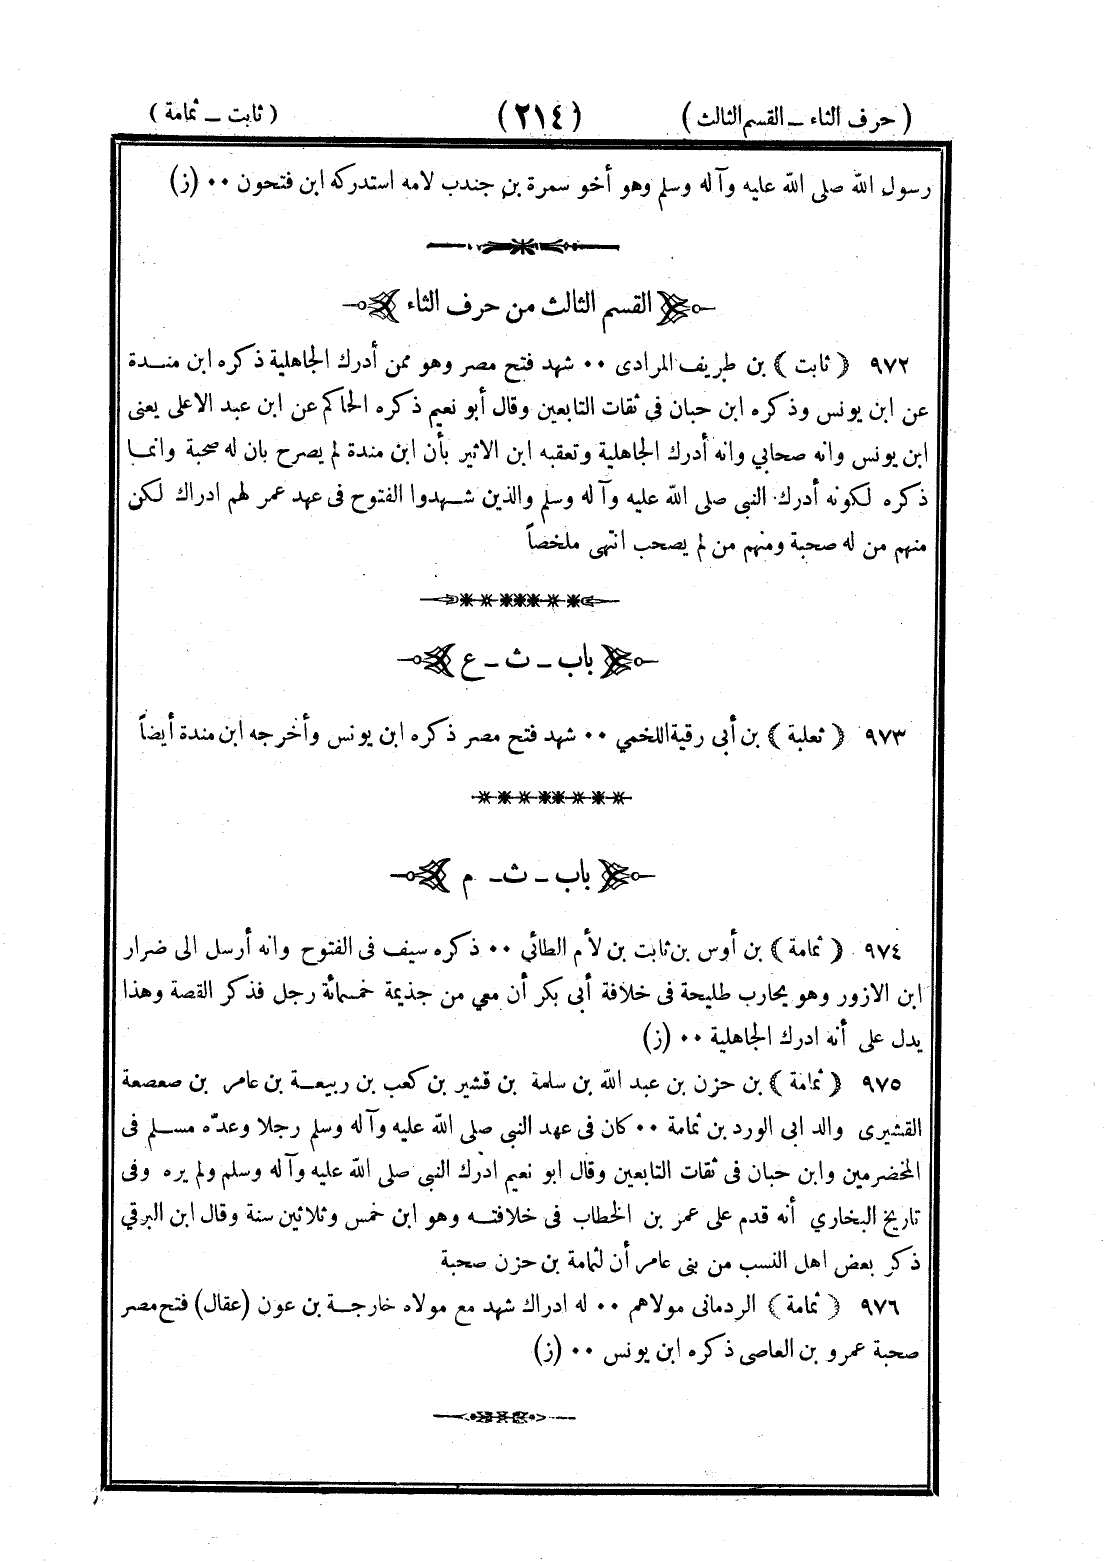 ( حرف الثاء ــ القسم الثالث ) ( ٢١٤ ) ( ثابت ــ ثمامة )
رسول الله صلى الله عليه وآله وسلم وهو أخو سمرة بن جندب لامه استدركه ابن فتحون ٠٠ (ز)
القسم الثالث من حرف الثاء
٩٧٢ ﴿ ثابت ﴾ بن طريف المرادى ٠٠ شهد فتح مصر وهو ممن أدرك الجاهلية ذكره ابن منـــدة
عن ابن يونس وذكره ابن حبان فى ثقات التابعين وقال أبو نعيم ذكره الحاكم عن ابن عبد الاعلى يعنى
ابن يونس وانه صحابي وانه أدرك الجاهلية وتعقبه ابن الاثير بأن ابن مندة لم يصرح بان له صحبة وانمـا
ذكره لكونه أدرك النبى صلى الله عليه وآله وسلم والذين شـهدوا الفتوح فى عهد عمر لهم ادراك لكن
منهم من له صحبة ومنهم من لم يصحب انتهى ملخصاً
باب ـ ث ـ ع
٩٧٣ ﴿ ثعلبة ﴾ بن أبى رقية اللخمي ٠٠ شهد فتح مصر ذكره ابن يونس وأخرجه ابن مندة أيضاً
باب ـ ث ـ م
٩٧٤ ﴿ ثمامة ﴾ بن أوس بن ثابت بن لأم الطائي ٠٠ ذكره سيف فى الفتوح وانه أرسل الى ضرار
ابن الازور وهو يحارب طليحة فى خلافة أبي بكر أن معي من جذيمة خمسمائة رجل فذكر القصة وهذا
يدل على أنه ادرك الجاهلية ٠٠ (ز)
٩٧٥ ﴿ ثمامة ﴾ بن حزن بن عبد الله بن سلمة بن قشير بن كعب بن ربيعـة بن عامر بن صعصعة
القشيرى والد ابى الورد بن ثمامة ٠٠ كان فى عهد النبى صلى الله عليه وآله وسلم رجلا وعدّه مسـلم فى
المخضرمين وابن حبان فى ثقات التابعين وقال ابو نعيم ادرك النبى صلى الله عليه وآله وسلم ولم يره وفى
تاريخ البخاري أنه قدم على عمر بن الخطاب فى خلافتـه وهو ابن خمس وثلاثين سنة وقال ابن البرقي
ذكر بعض اهل النسب من بنى عامر أن لثمامة بن حزن صحبة
٩٧٦ ﴿ ثمامة ﴾ الردمانى مولاهم ٠٠ له ادراك شهد مع مولاه خارجـة بن عون (عقال) فتح مصر
صحبة عمرو بن العاصى ذكره ابن يونس ٠٠ (ز)